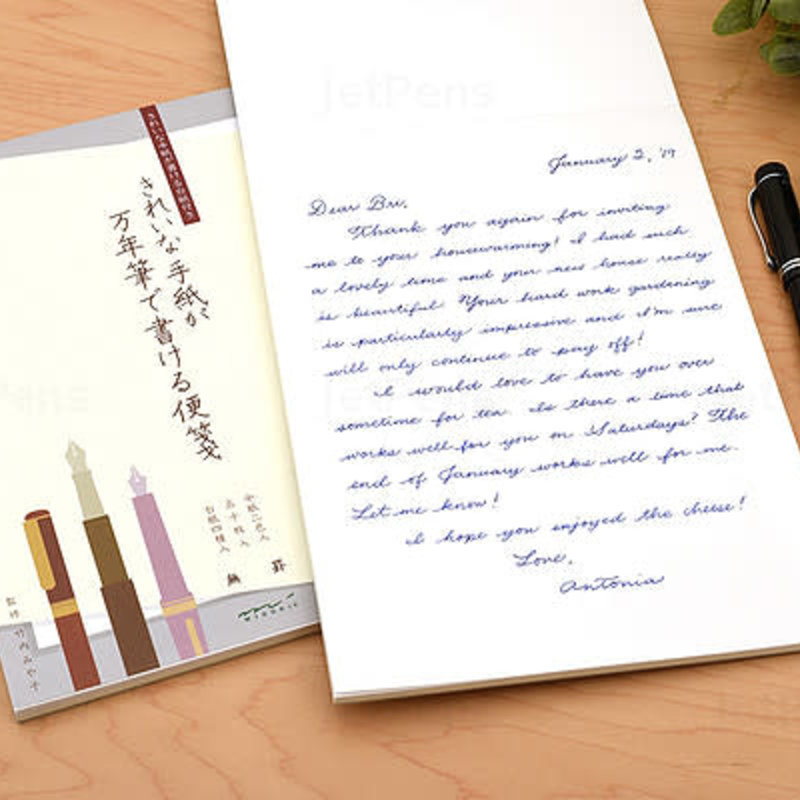 きれいな手紙が書ける台紙付き
きれいな手紙が
万年筆で書ける便箋
台紙四種入
無
罫
MIDORI
January 2, '19
Dear Bri,
Thank you again for inviting
me to your housewarming! I had such
a lovely time and your new house really
is beautiful. Your hard work gardening
is particularly impressive and I'm sure
will only continue to pay off!
I would love to have you over
sometime for tea. Is there a time that
works well for you on Saturdays? The
end of January works well for me.
Let me know!
I hope you enjoyed the cheese!
Love,
Antonia
JetPens